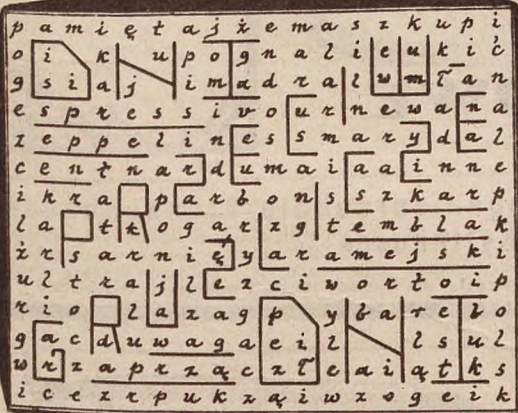 p a m i ę t a j ż e m a s z k u p i
o i k u p o g n a l i e u k i ć
g s i a j i m a d r a l w m ł a n
e s p r e s s i v o u r n e w a n a
z e p p e l i n e s s m a r y d a l
c e n t n a r d u m a i a a i n n e
i k r a p a r b o n s s z k a r p
l a t k o g a r z g t e m b l a k
ż r s a r n i ę y a r a m e j s k i
u l t r a j l e z c i w o r t o i p
r i o l a z a g p y b a r e b o
g a c d u w a g a e i l l s u l
w r z a p r z ą c z ł e a i ą t k s
i c e z r p u k z ą i w z o g e i k